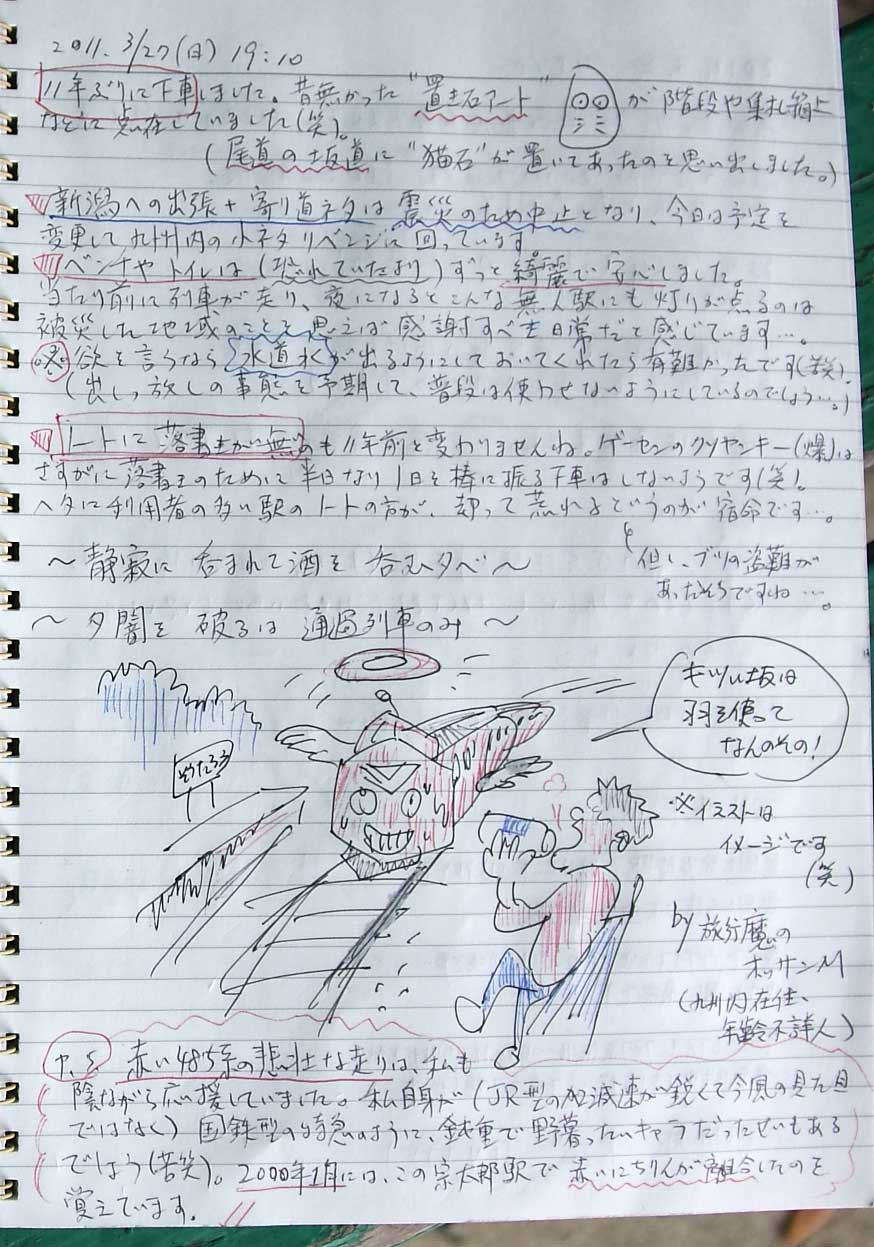 2011. 3/27(日) 19:10
11年ぶりに下車しました。昔無かった "置き石アート" が階段や集札箱上
などに点在していました(笑)。
(尾道の坂道に "猫石" が置いてあったのを思い出しました。)
新潟への出張+寄り道ネタは震災のため中止となり、今日は予定を
変更して九州内の小ネタリベンジに回っています。
ベンチやトイレは(恐れていたより)ずっと綺麗で安心しました。
当たり前に列車が走り、夜になるとこんな無人駅にも灯りが点るのは
被災した地域のことを思えば感謝すべき日常だと感じています…。
欲を言うなら水道水が出るようにしておいてくれたら有難かったです(苦笑)。
(出しっ放しの事態を予期して、普段は使わせないようにしているのでしょう…。)
ノートに落書きが無いのも11年前と変わりませんね。ゲーセンのクソヤンキー(爆)は
さすがに落書きのために半日なり1日を棒に振る下車はしないようです(笑)。
ヘタに利用者の多い駅のノートの方が、却って荒れるというのが宿命です…。
但し、ブツの盗難が
あったそうですね…。
~静寂に呑まれて酒を呑む夕べ~
~夕闇を破るは通過列車のみ~
キツい坂は
羽を使って
なんのその!
そうたろう
※イラストは
イメージです
(笑)
by 旅行魔の
オッサンM
(九州内在住、
年齢不詳人)
P.S. 赤い485系の悲壮な走りは、私も
陰ながら応援していました。私自身が(JR型の加減速が鋭くて今風の見た目
ではなく)国鉄型の特急のように、鈍重で野暮ったいキャラだったせいもある
でしょう(苦笑)。2000年1月には、この宗太郎駅で赤いにちりんが離合したのを
覚えています。